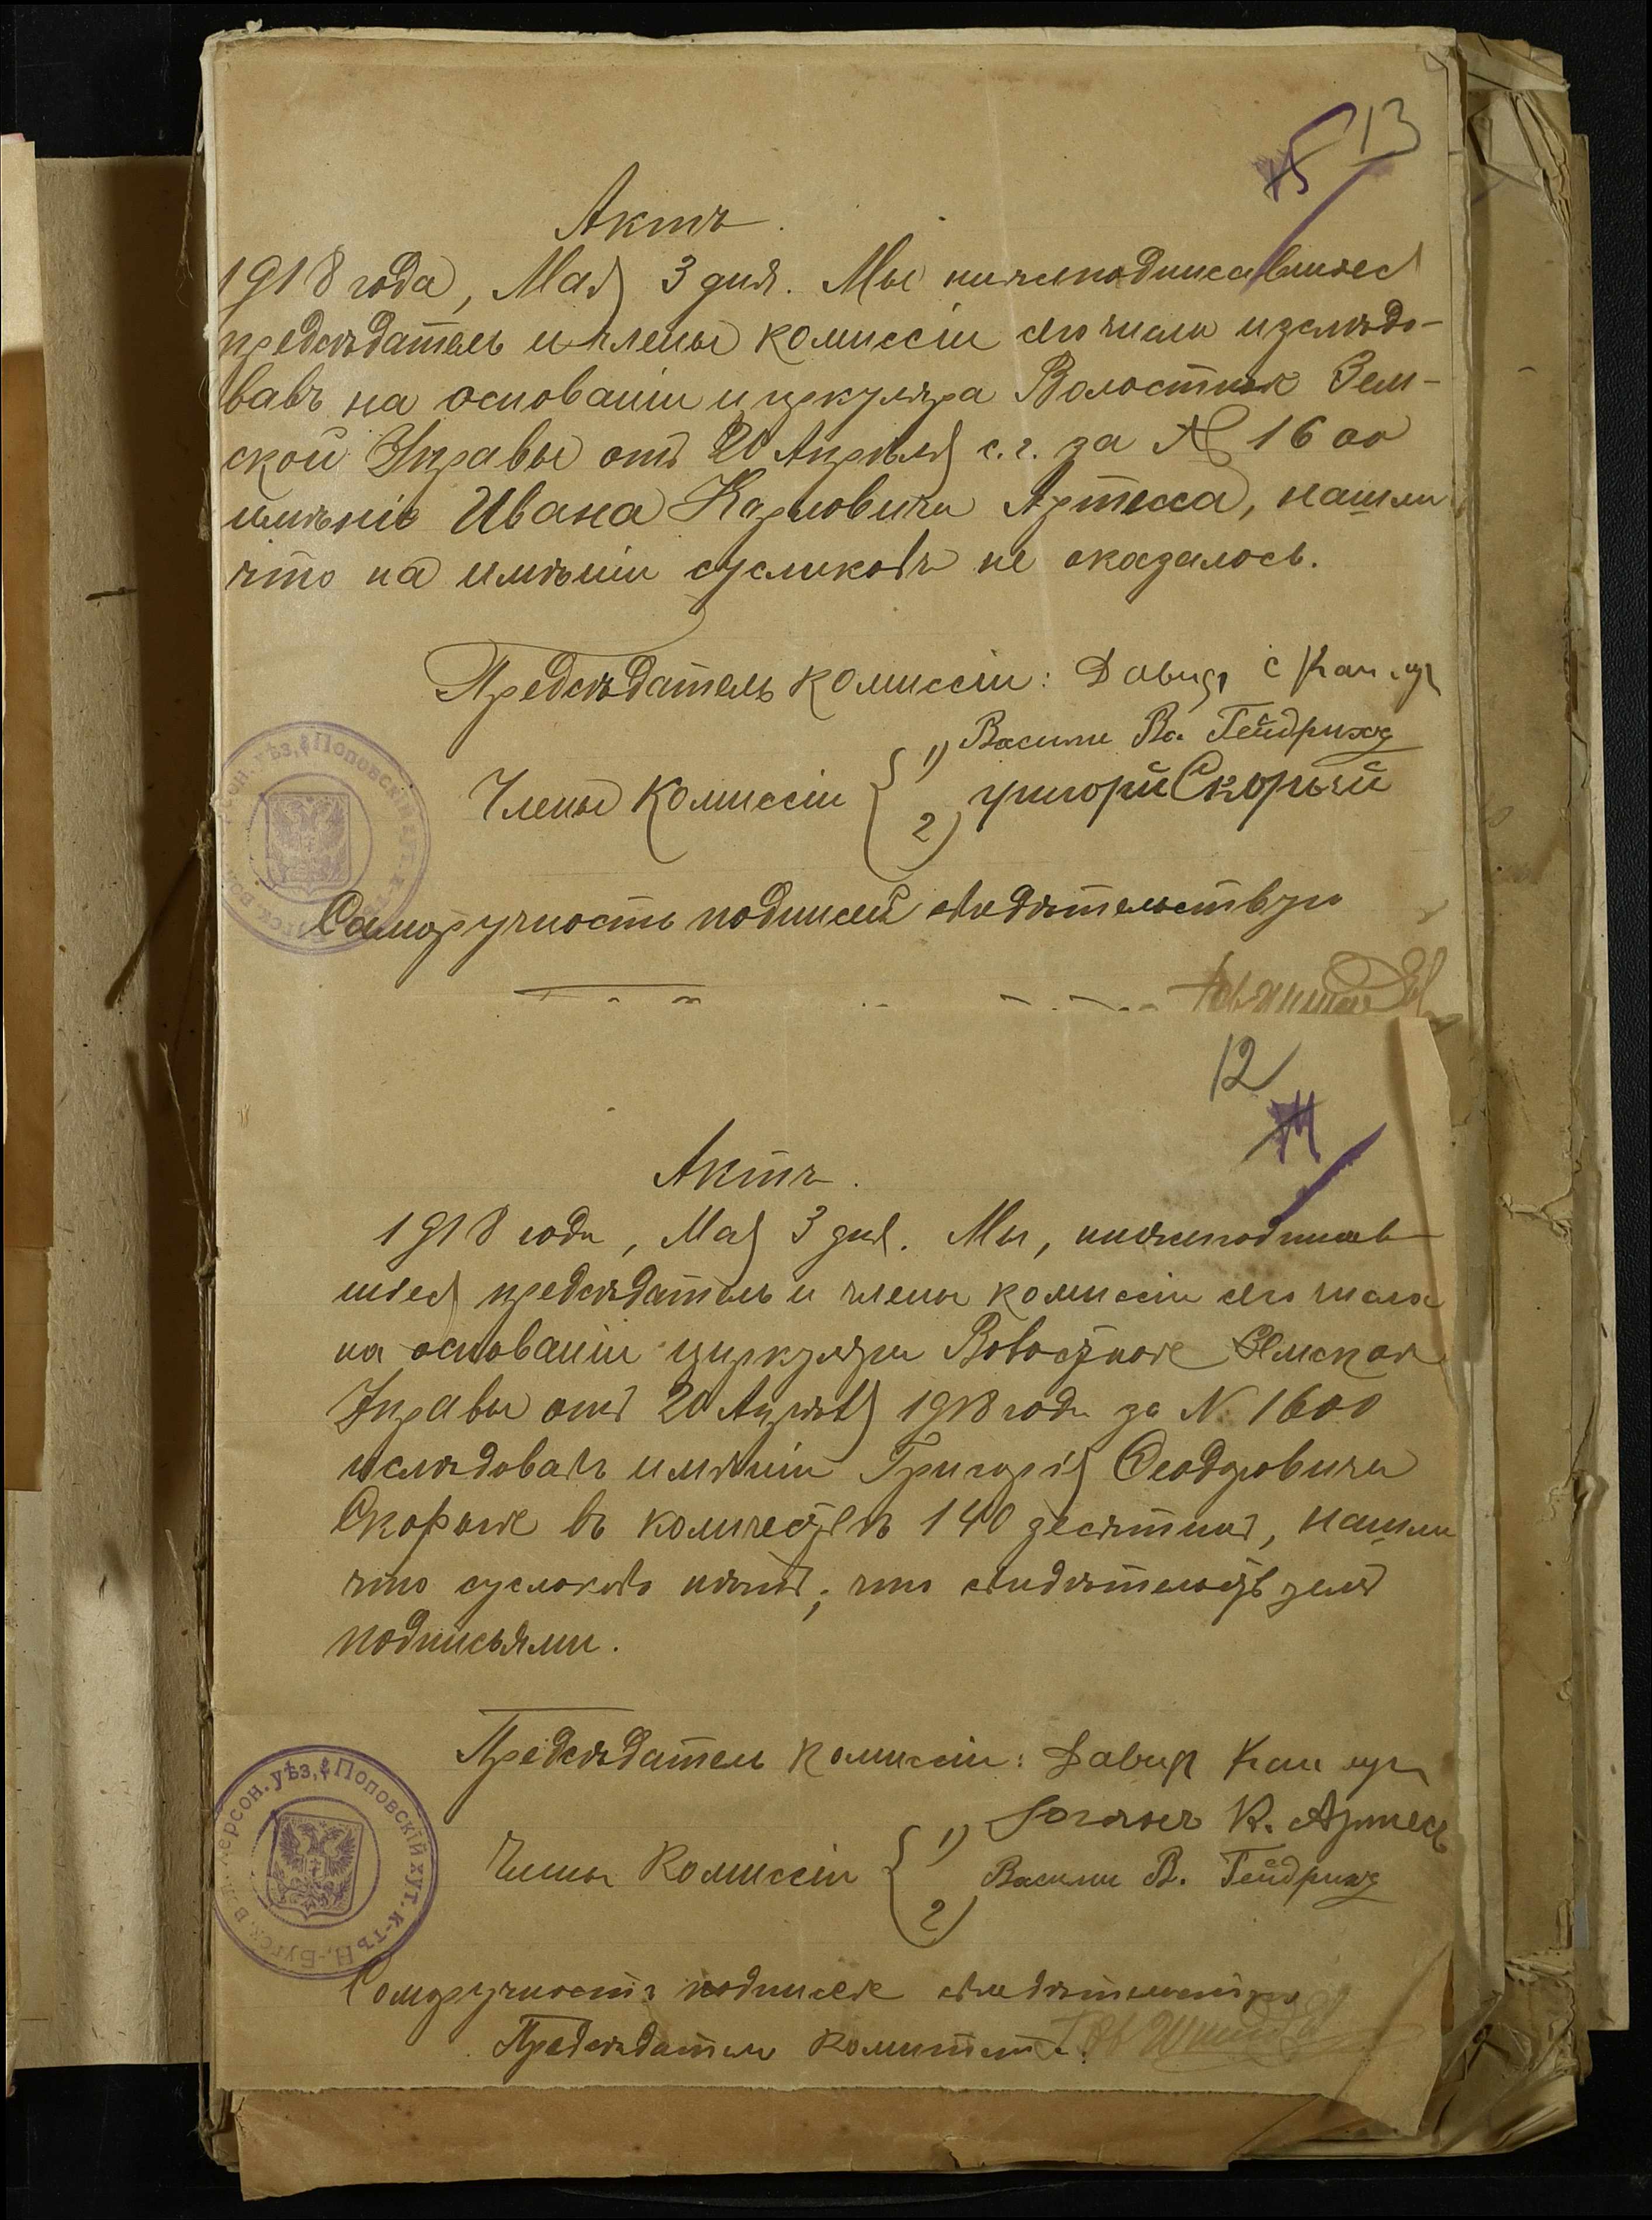 13
15
Актъ.
1918 года, Мая 3 дня. Мы нижеподписавшіеся
предсѣдатель и члены комиссіи сего числа изслѣдо-
вавъ на основаніи циркуляра Волостной Зем-
ской Управы отъ 20 Апрѣля с.г. за № 1600
имѣніе Ивана Карловича Артеса, нашли
что на имѣніи сусликовъ не оказалось.
Предсѣдатель комиссіи: Давид
Члены Комиссіи { 1) Васили Вас. Гейдрихъ
2) Григорий Скорый
Саморучность подписей свидѣтельствую
12
Актъ.
1918 года, Мая 3 дня. Мы, нижеподписав-
шіеся предсѣдатель и члены комиссіи сего числа
на основаніи циркуляра Волостной Земской
Управы отъ 20 Апрѣля 1918 года за № 1600
изслѣдовавъ имѣніи Григорія Феодоровича
Скорые въ количествѣ 140 десятинъ, нашли
что сусликовъ нѣтъ; что свидѣтельствуемъ
подписями.
Предсѣдатель комиссіи: Давид
Члены Комиссіи { 1) К. Артесъ
2) Васили В. Гейдрихъ
Саморучность подписей свидѣтельствую
Предсѣдатель комитета
Херсон. уѣз., Поповскій хут. к-тъ Н.-Бугск. вол.